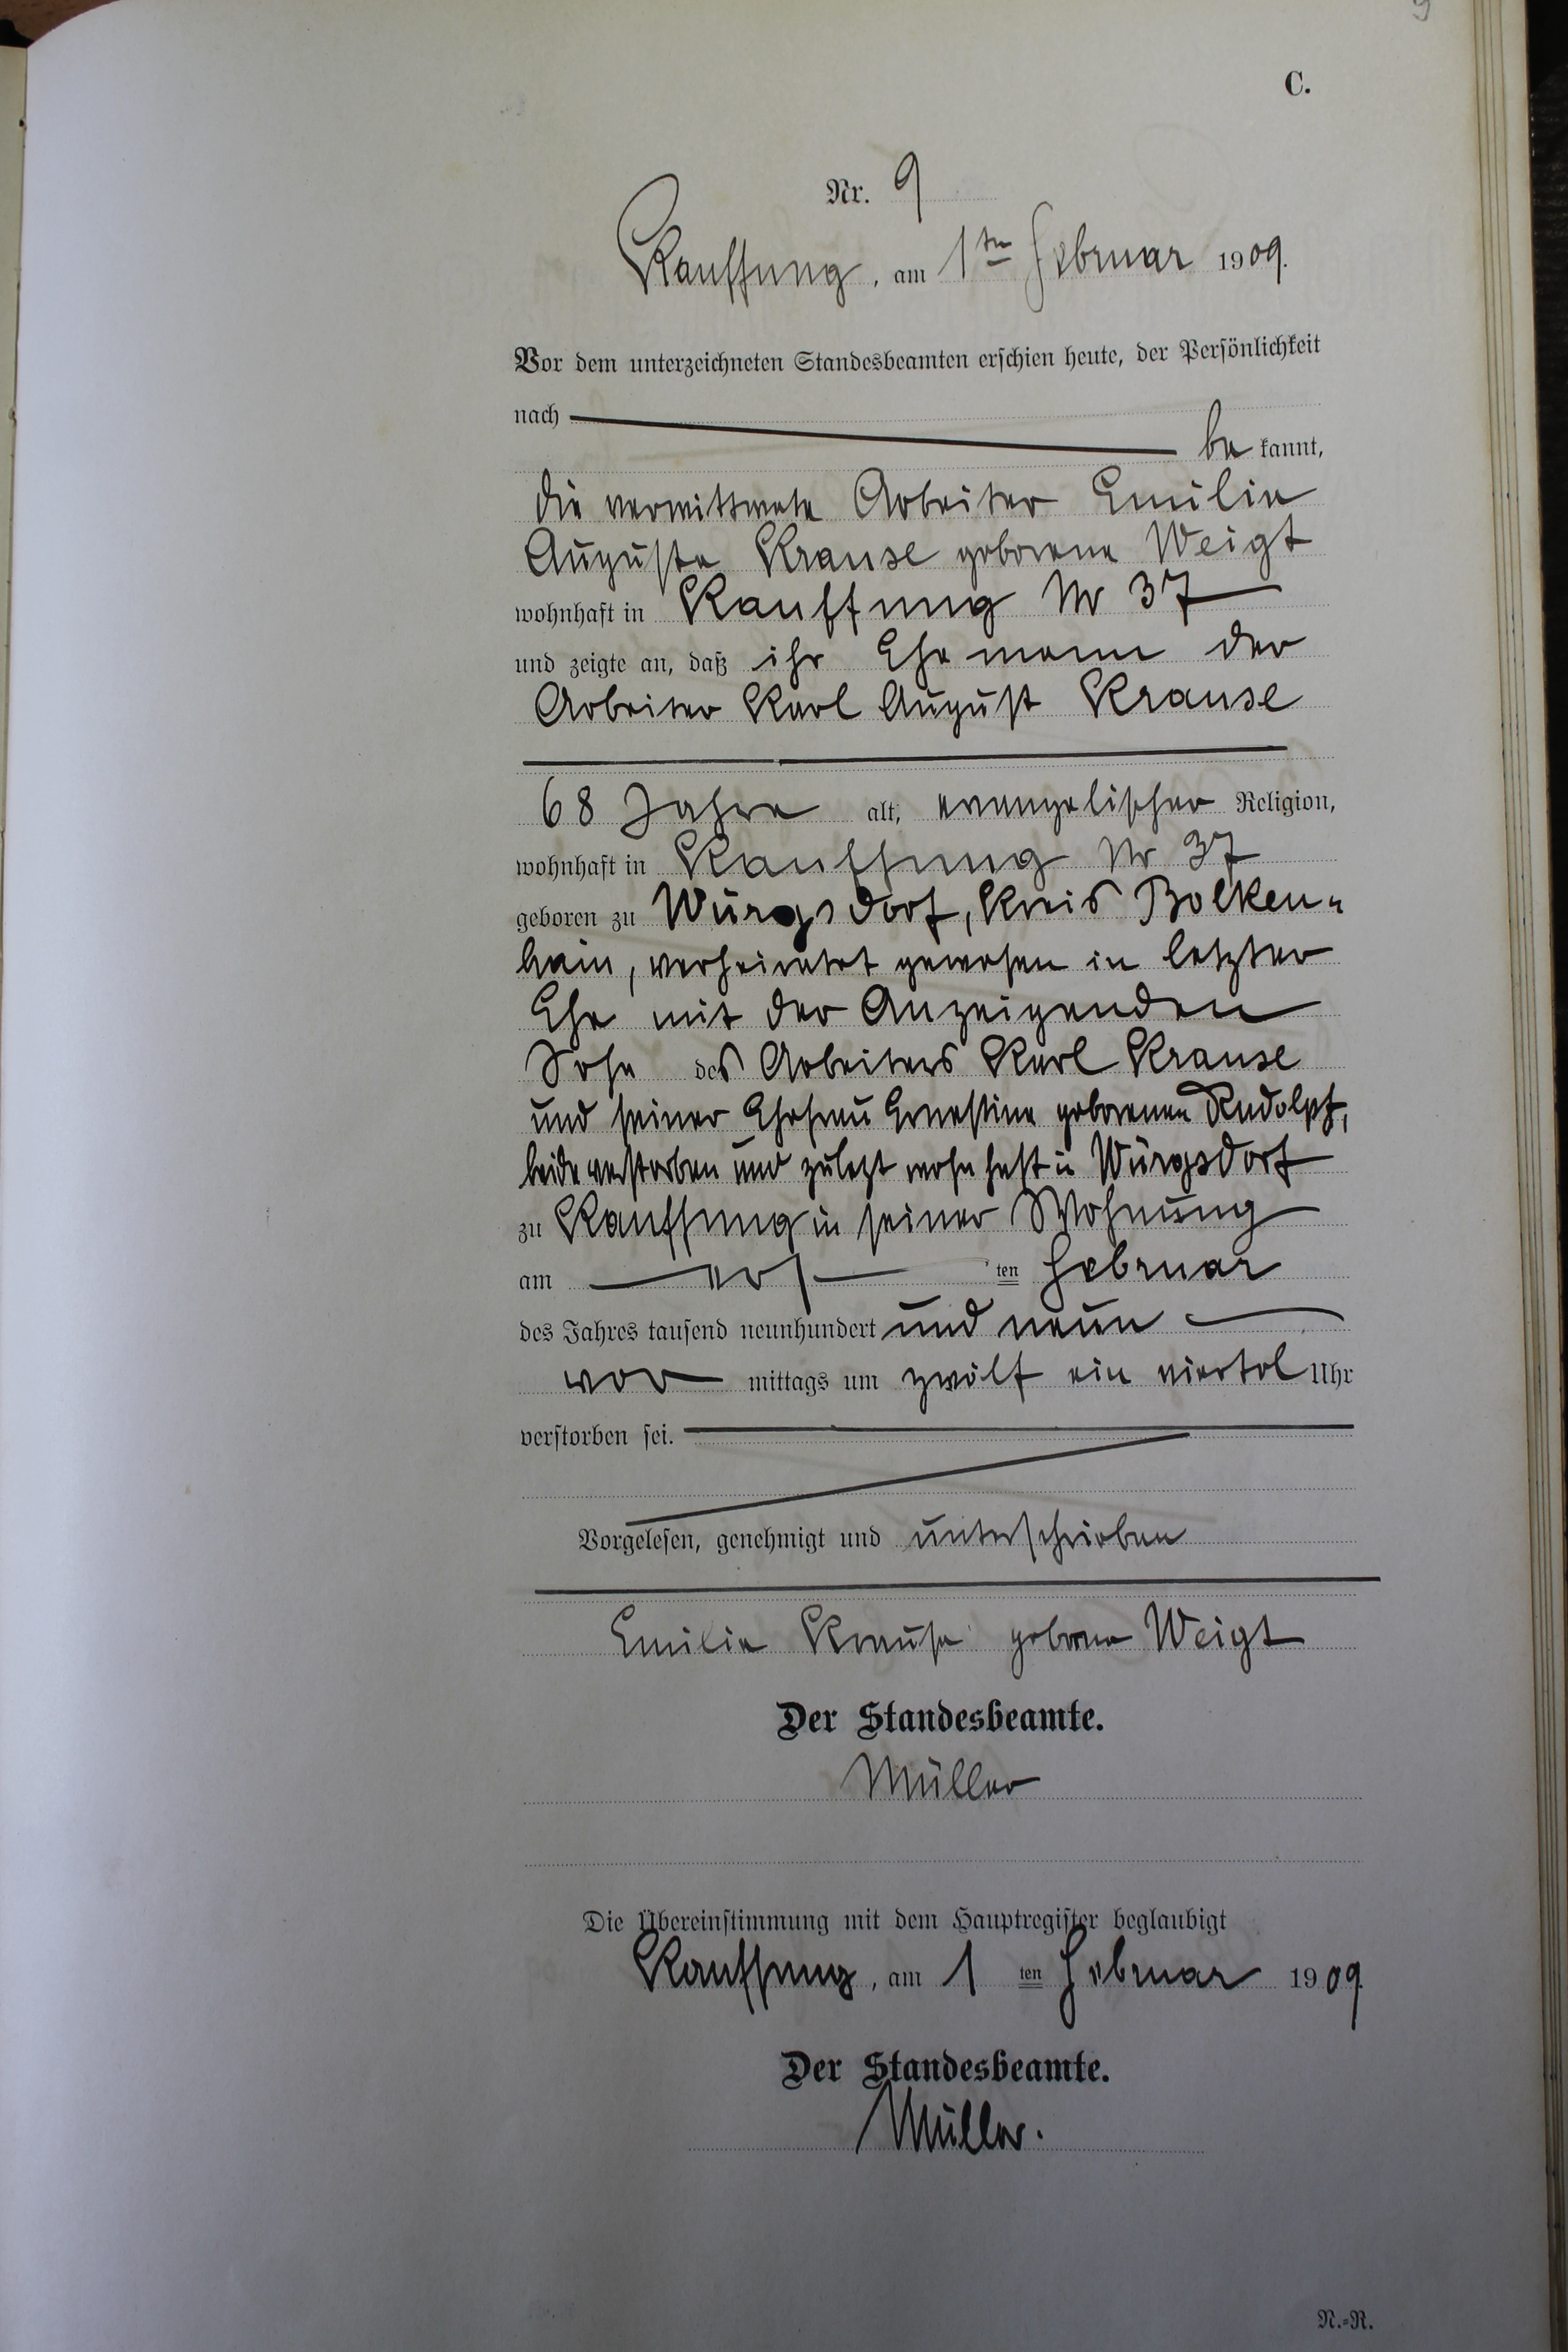 9
C.
Nr. 9
Kauffung, am 1ten Februar 1909.
Vor dem unterzeichneten Standesbeamten erschien heute, der Persönlichkeit
nach
be kannt,
die verwittwete Arbeiter Emilie
Auguste Krause geborene Weigt
wohnhaft in Kauffung Nr 37
und zeigte an, daß ihr Ehemann der
Arbeiter Karl August Krause
68 Jahre alt, evangelischer Religion,
wohnhaft in Kauffung Nr 37
geboren zu Würgsdorf, Kreis Bolken-
hain, verheiratet gewesen in letzter
Ehe mit der Anzeigenden
Sohn des Arbeiters Karl Krause
und seiner Ehefrau Ernestine geborenen Rudolph,
beide verstorben und zuletzt wohnhaft in Würgsdorf
zu Kauffung in seiner Wohnung
am ers ten Februar
des Jahres tausend neunhundert und neun
vor mittags um zwölf ein viertel Uhr
verstorben sei.
Vorgelesen, genehmigt und unterschrieben
Emilie Krause geborene Weigt
Der Standesbeamte.
Müller
Die Übereinstimmung mit dem Hauptregister beglaubigt
Kauffung, am 1 ten Februar 1909
Der Standesbeamte.
Müller.
N.-R.